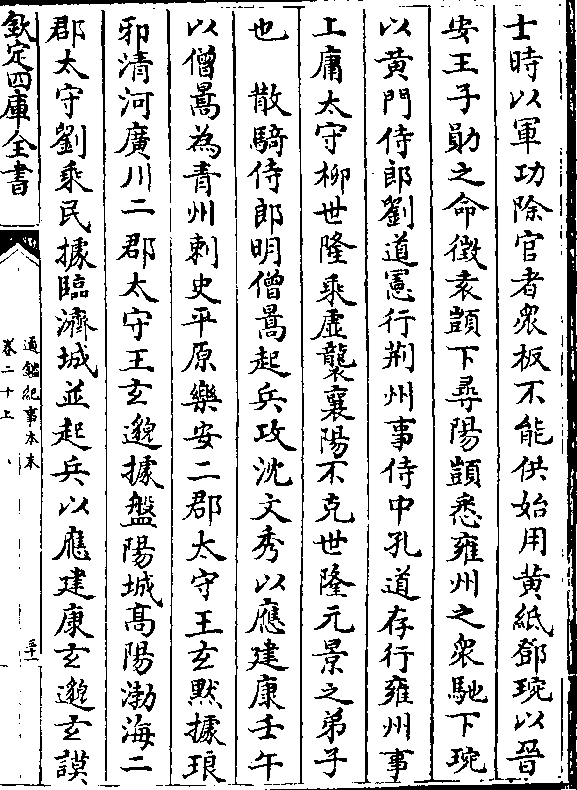 士時以軍功除官者衆板不能供始用黄紙鄧琬以晉
安王子勛之命徵袁顗下尋陽顗悉雍州之衆馳下琬
以黄門侍郎劉道憲行荆州事侍中孔道存行雍州事
上庸太守柳世隆乘虚襲襄陽不克世隆元景之弟子
也　散騎侍郎明僧暠起兵攻沈文秀以應建康壬午
以僧暠為青州刺史平原樂安二郡太守王玄默據琅
邪清河廣川二郡太守王玄邈據盤陽城髙陽渤海二
郡太守劉乘民據臨濟城並起兵以應建康玄邈玄謨
欽定四庫全書
通鑑紀事本末
卷二十上